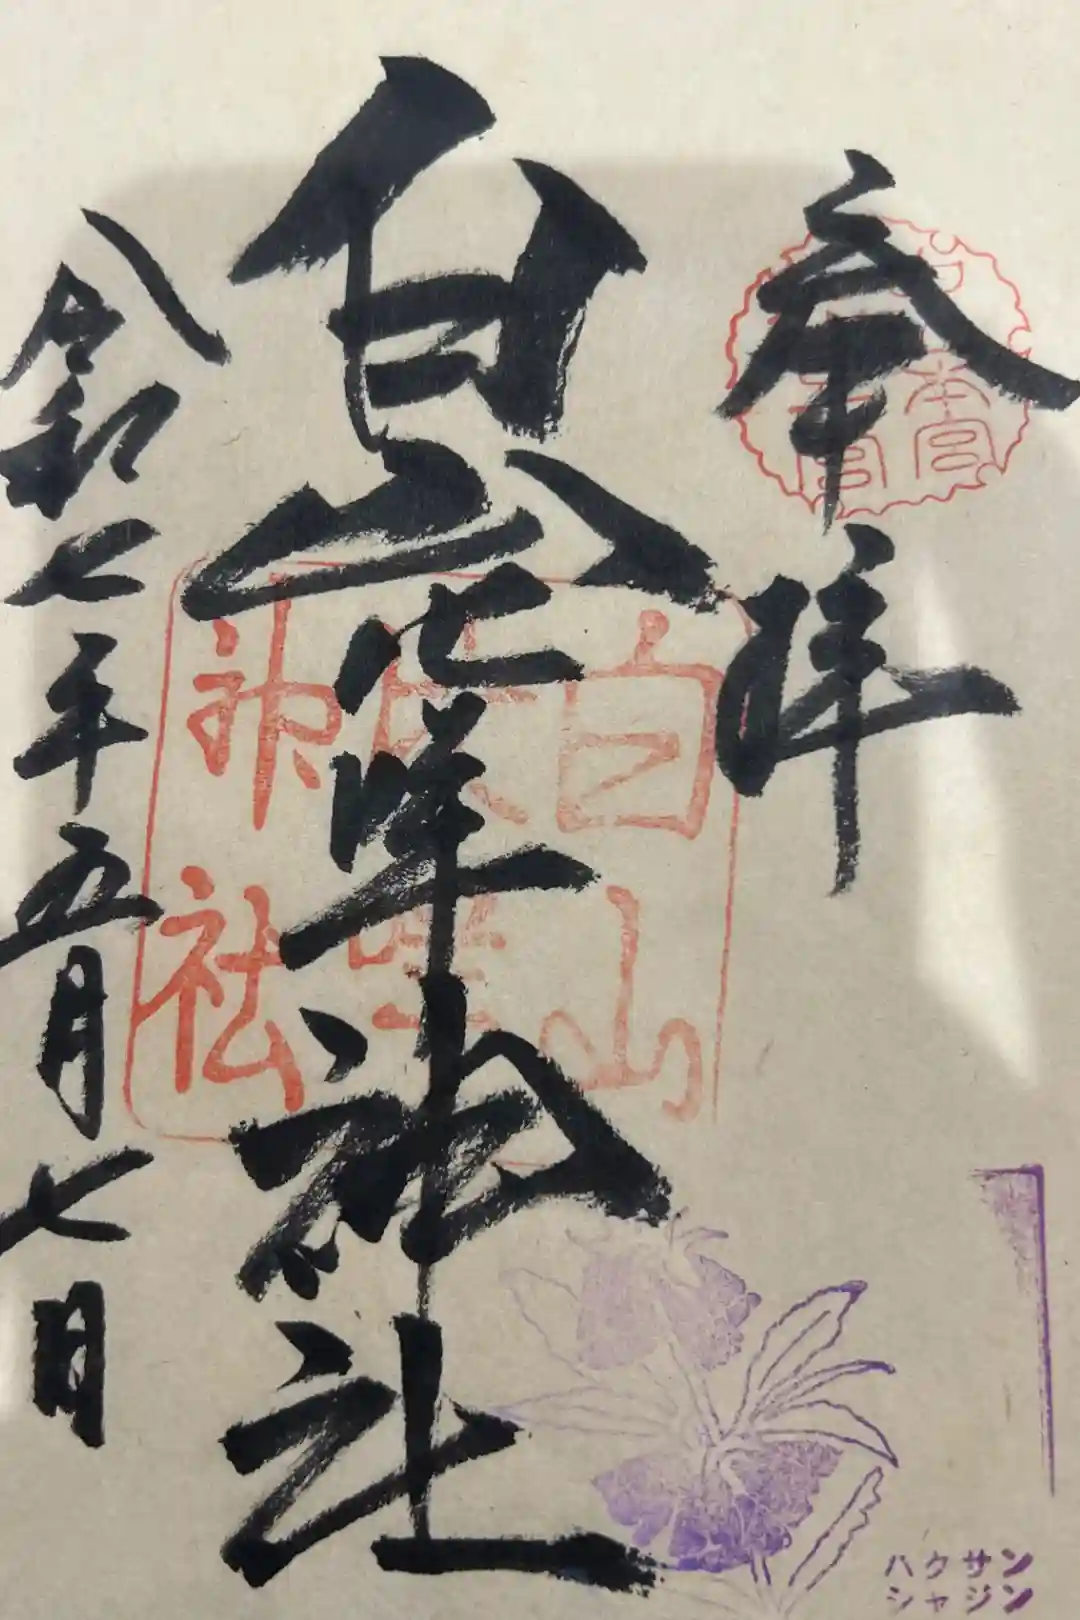 奉拝
白山比咩神社
令和七年五月七日
本宮
白山
神社
ハクサン
シャジン